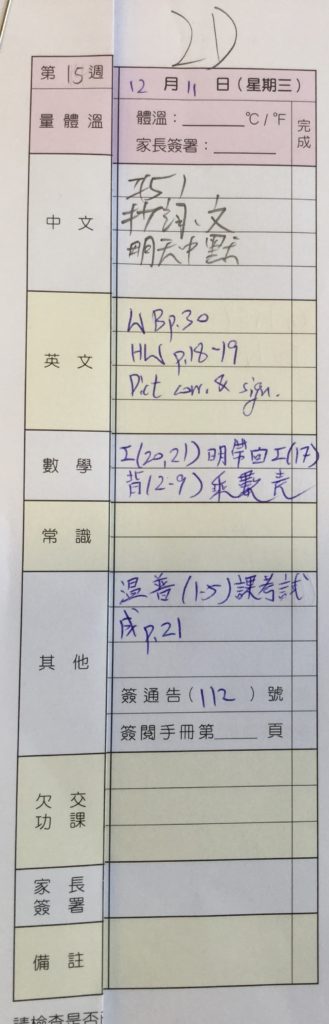 2D
第 15 週
12 月 11 日 (星期三)
完成
量體溫
體溫：______℃/℉
家長簽署：______
中文
抄詞、文
明天中默
英文
WB p.30
HW p.18-19
Dict corr. & sign.
數學
工(20,21) 明帶回工(17)
背(2-9) 乘數壳
常識
其他
温普 (1-5) 課考試
成 p.21
簽通告 (112) 號
簽閱手冊第____頁
欠交功課
家長簽署
備註